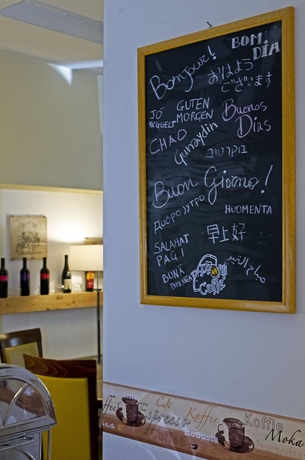 BOM
DIA
Bonjour!
おはよう
ございます
JÓ
REGGELT
GUTEN
MORGEN
Buenos
Dias
CHAO
Gunaydin
בוקר טוב
Buon Giorno!
ДОБРОЕ УТРО
HUOMENTA
SALAMAT
PAGI
早上好
BUNĂ
صباح الخير
Coffee
Café
Espresso
Kaffee
Koffie
Moka